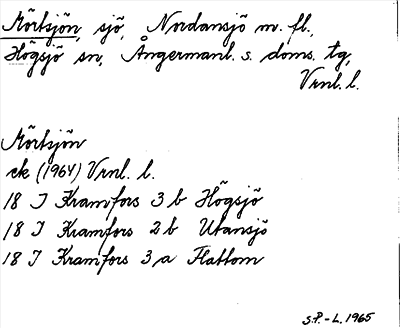 Mörtsjön, sjö, Nordansjö m. fl.,
Högsjö sn, Ångermanl. s. doms. tg,
Vrnl. l.
Mörtsjön
ek (1964) Vrnl. l.
18 I Kramfors 3 b Högsjö
18 I Kramfors 2 b Utansjö
18 I Kramfors 3 a Flattom
S.P. - L. 1965